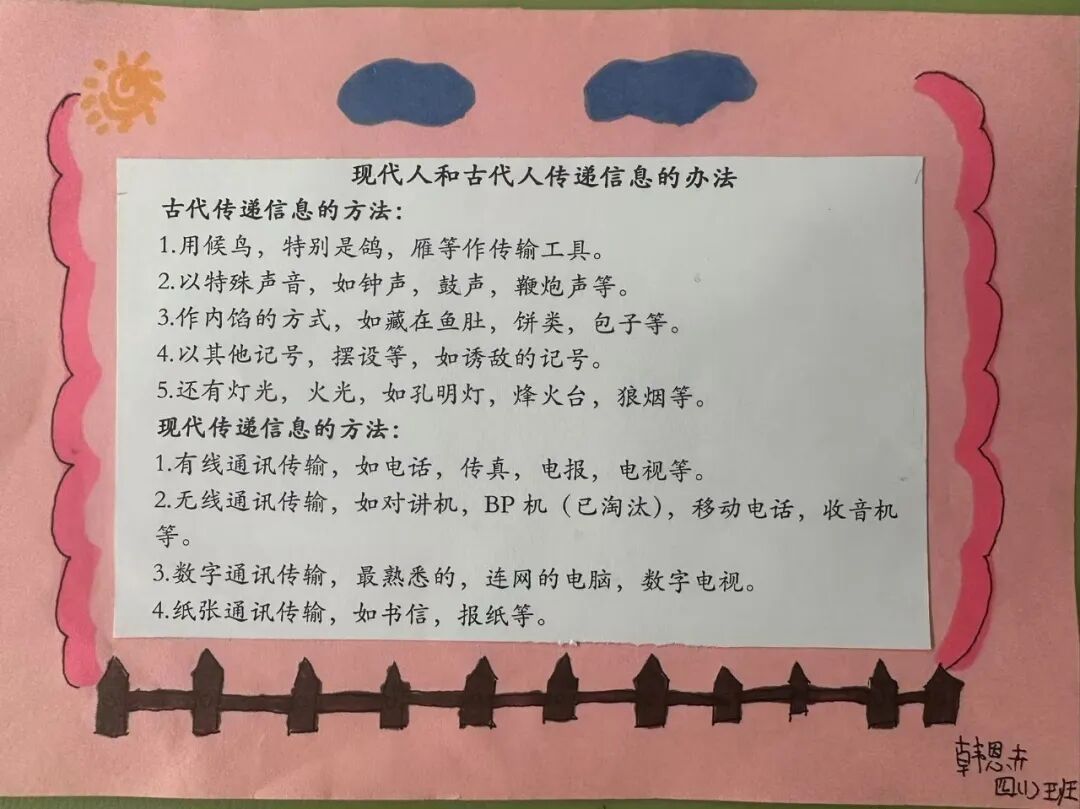 现代人和古代人传递信息的办法
古代传递信息的方法：
1.用候鸟，特别是鸽，雁等作传输工具。
2.以特殊声音，如钟声，鼓声，鞭炮声等。
3.作内馅的方式，如藏在鱼肚，饼类，包子等。
4.以其他记号，摆设等，如诱敌的记号。
5.还有灯光，火光，如孔明灯，烽火台，狼烟等。
现代传递信息的方法：
1.有线通讯传输，如电话，传真，电报，电视等。
2.无线通讯传输，如对讲机，BP 机（已淘汰），移动电话，收音机
等。
3.数字通讯传输，最熟悉的，连网的电脑，数字电视。
4.纸张通讯传输，如书信，报纸等。
韩恩
班